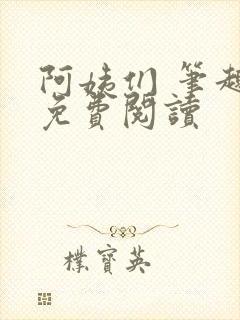 阿姨们 筆趣
免費閱讀
樸寶英